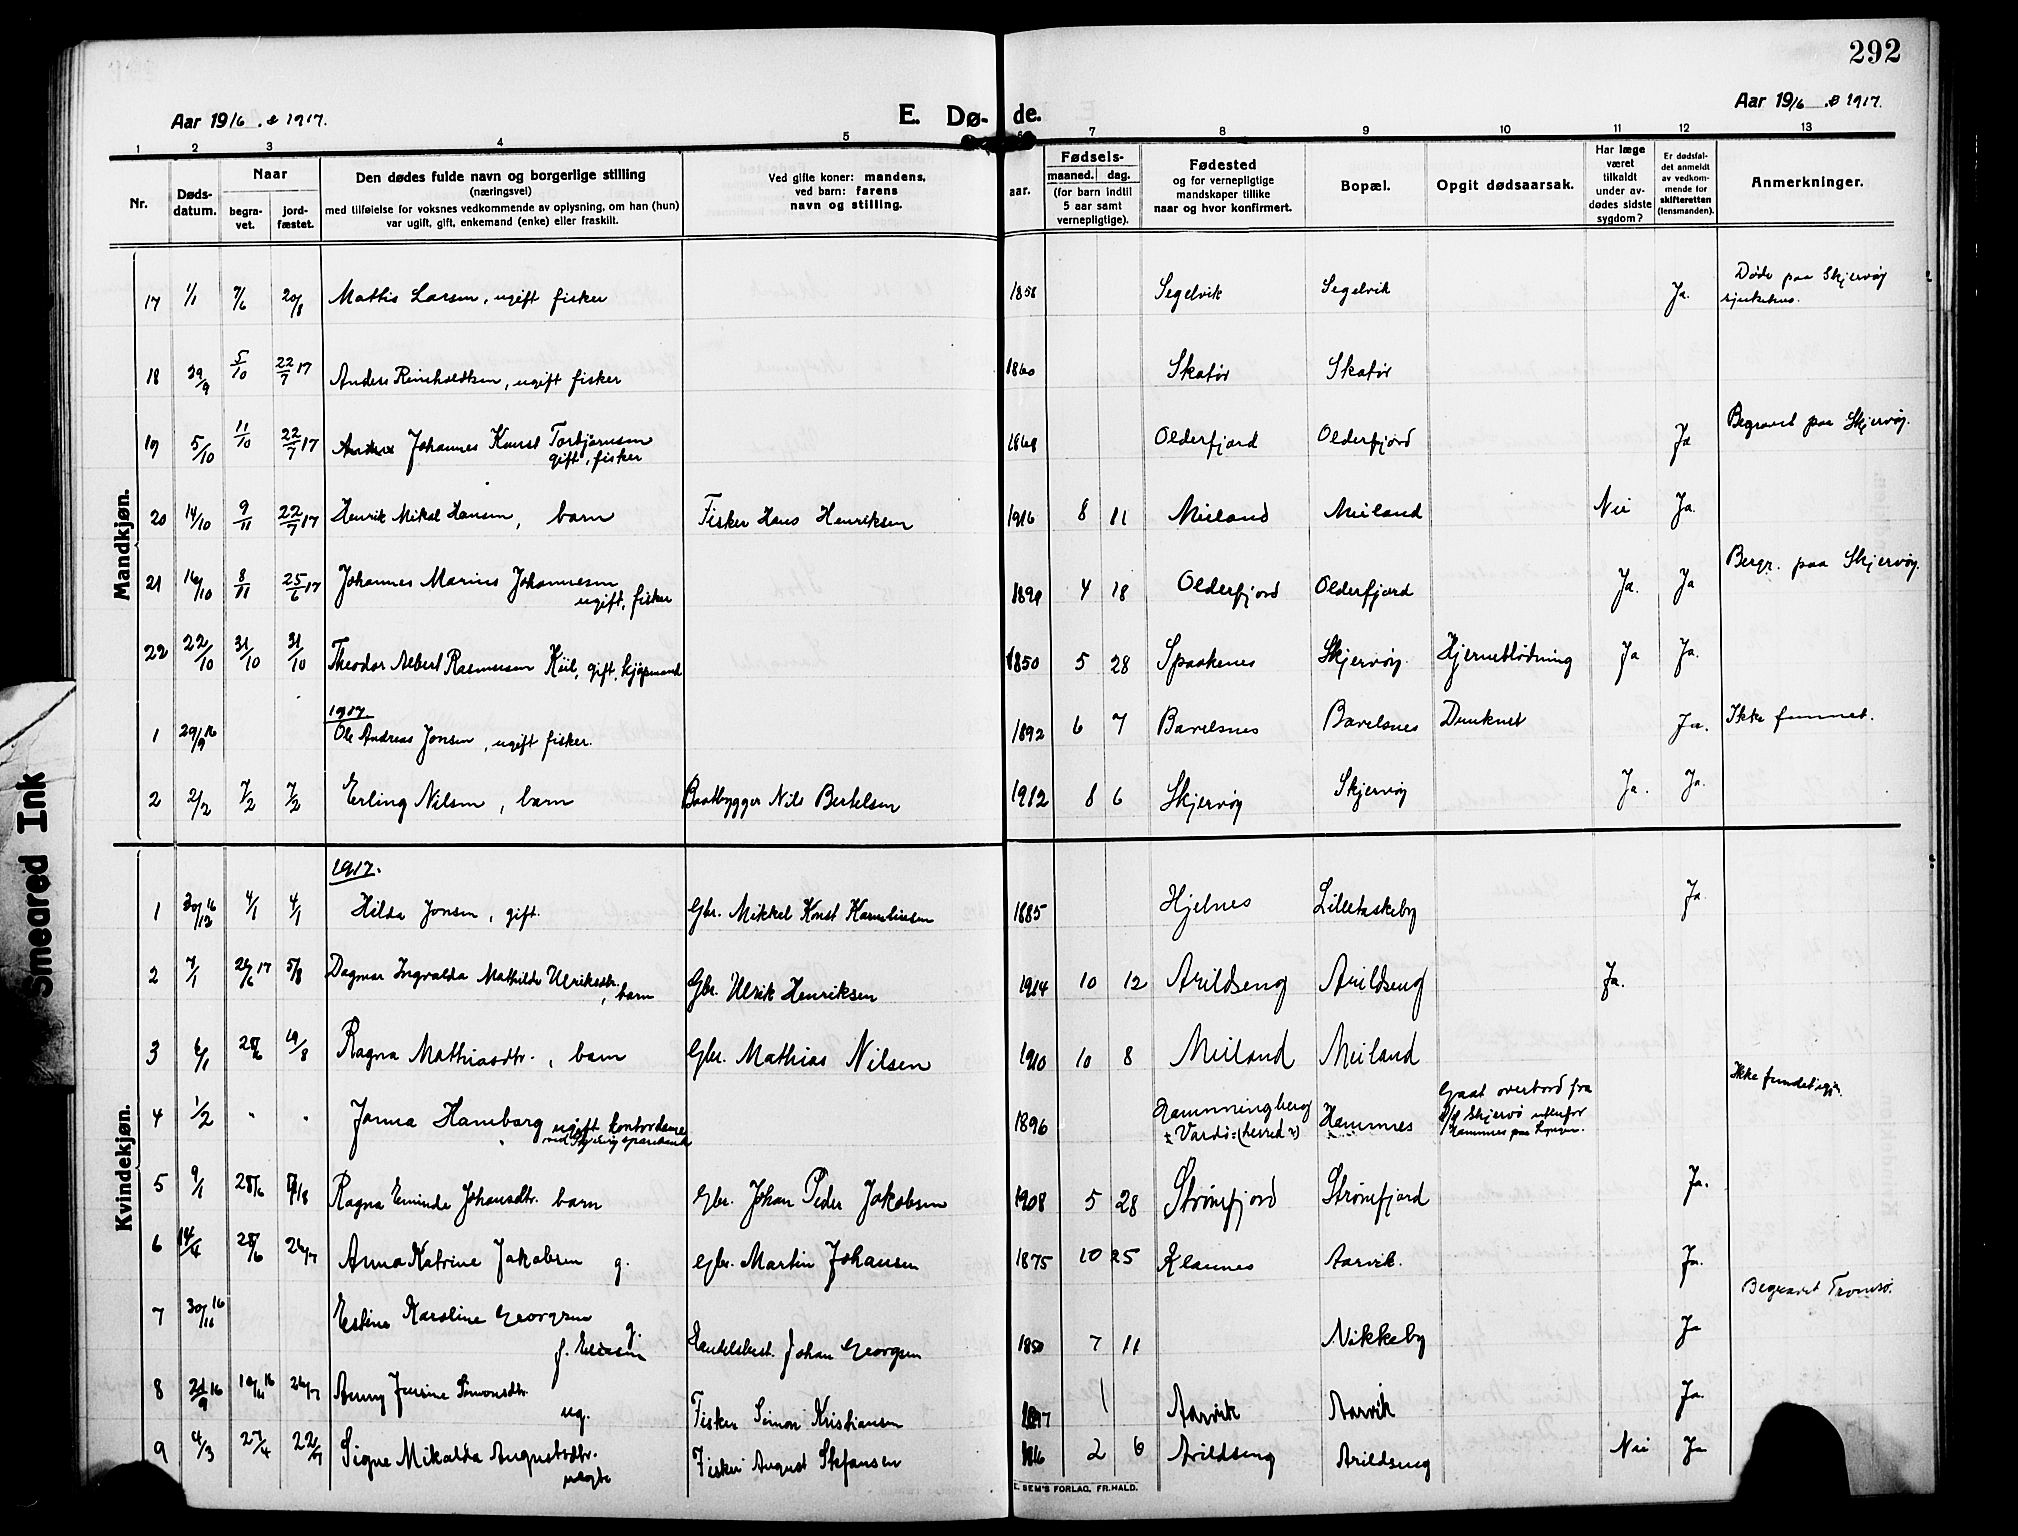 292
Aar 1916 & 1917.
E. Dø-de.
Aar 1916 & 1917.
1 2 3 4 5 6 7 8 9 10 11 12 13
Nr.
Døds-
datum.
Naar
begra-
vet.
jord-
fæstet.
Den dødes fulde navn og borgerlige stilling
(næringsvei)
med tilføielse for voksnes vedkommende av oplysning, om han (hun)
var ugift, gift, enkemand (enke) eller fraskilt.
Ved gifte koner: mandens,
ved barn: farens
navn og stilling.
aar.
Fødsels-
maaned. dag.
(for barn indtil
5 aar samt
vernepligtige).
Fødested
og for vernepligtige
mandskaper tillike
naar og hvor konfirmert.
Bopæl.
Opgit dødsaarsak.
Har læge
været
tilkaldt
under av-
dødes sidste
sygdom?
Er dødsfal-
det anmeldt
av vedkom-
mende for
skifteretten
(lensmanden).
Anmerkninger.
Mandkjøn.
17 1/1 7/6 20/8 Mattis Larsen, ugift fisker 1858 Segelvik Segelvik Ja. Døde paa Skjervøy
sjukehus.
18 29/9 5/10 22/7 17 Anders Reinholdtsen, ugift fisker 1860 Skatør Skatør
19 5/10 11/10 22/7 17 Johannes Konst Torbjørnsen
gift, fisker 1868 Olderfjord Olderfjord Ja Begravet paa Skjervøy.
20 14/10 9/11 22/7 17 Henrik Mikal Hansen, barn Fisker Hans Henriksen 1916 8 11 Meiland Meiland Nei Ja.
21 16/10 8/11 25/6 17 Johannes Marius Johannesen
ugift, fisker 1899 4 18 Olderfjord Olderfjord Ja. Ja Begr. paa Skjervøy.
22 22/10 31/10 31/10 Theodor Albert Rasmussen Kiil, gift, kjøpmand 1850 5 28 Spaakenes Skjervøy. Hjerneblødning Ja Ja.
1917.
1 29/9 16 Ole Andreas Jonsen, ugift fisker. 1892 6 7 Bavelsnes Bavelsnes Druknet Ja. Ikke funnet.
2 2/2 7/2 7/2 Erling Nilsen, barn Baatbygger Nils Bertelsen 1912 8 6 Skjervøy Skjervøy Ja. Ja.
Kvindekjøn.
1917.
1 30/12 16 4/1 4/1 Hilda Jonsen, gift. Gbr. Mikkel Konst Korneliussen 1885 Hjelnes Lilletaskeby Ja.
2 7/1 26/6 17 5/8 Dagmar Ingvalda Mathilde Ulriksdtr.
, barn Gbr. Ulrik Henriksen 1914 10 12 Arildseng Arildseng Ja.
3 6/1 28/6 19/8 Ragna Mathiasdtr., barn Gbr. Mathias Nilsen 1910 10 8 Meiland Meiland
4 1/2 " " Jonna Hamborg ugift kontordame
1896 Hamningberg
Vardø (herred?) Hamnes Gaat overbord fra
d/s Skjervø utenfor
Hamnes paa Lyngen. Ikke fundet igjen.
5 9/1 28/6 Ragna Eminde Johansdtr. barn Gbr. Johan Peder Jakobsen 1908 5 28 Strømfjord Strømfjord Ja.
6 14/4 28/6 26/7 Anna Katrine Jakobsen g. Gbr. Martin Johansen 1875 10 25 Klaunes Aarvik. Ja.
7 30/11 16 Estine Karoline Georgsen
g.
f. Handelsbest. Johan Georgsen 1850 7 11 Nikkeby Ja Begravet Tromsø.
8 21/9 16 10/11 16 26/7 Anny Jensine Simonsdtr.
ug. Fisker Simon Kristiansen 1897 1 Aarvik Aarvik Ja.
9 4/3 27/4 22/7 Signe Mikalda Augustsdtr.
Fisker August Stefansen 1916 2 6 Arildseng Arildseng Nei Ja
E. SEM'S FORLAG, FR.HALD.
Smeared Ink